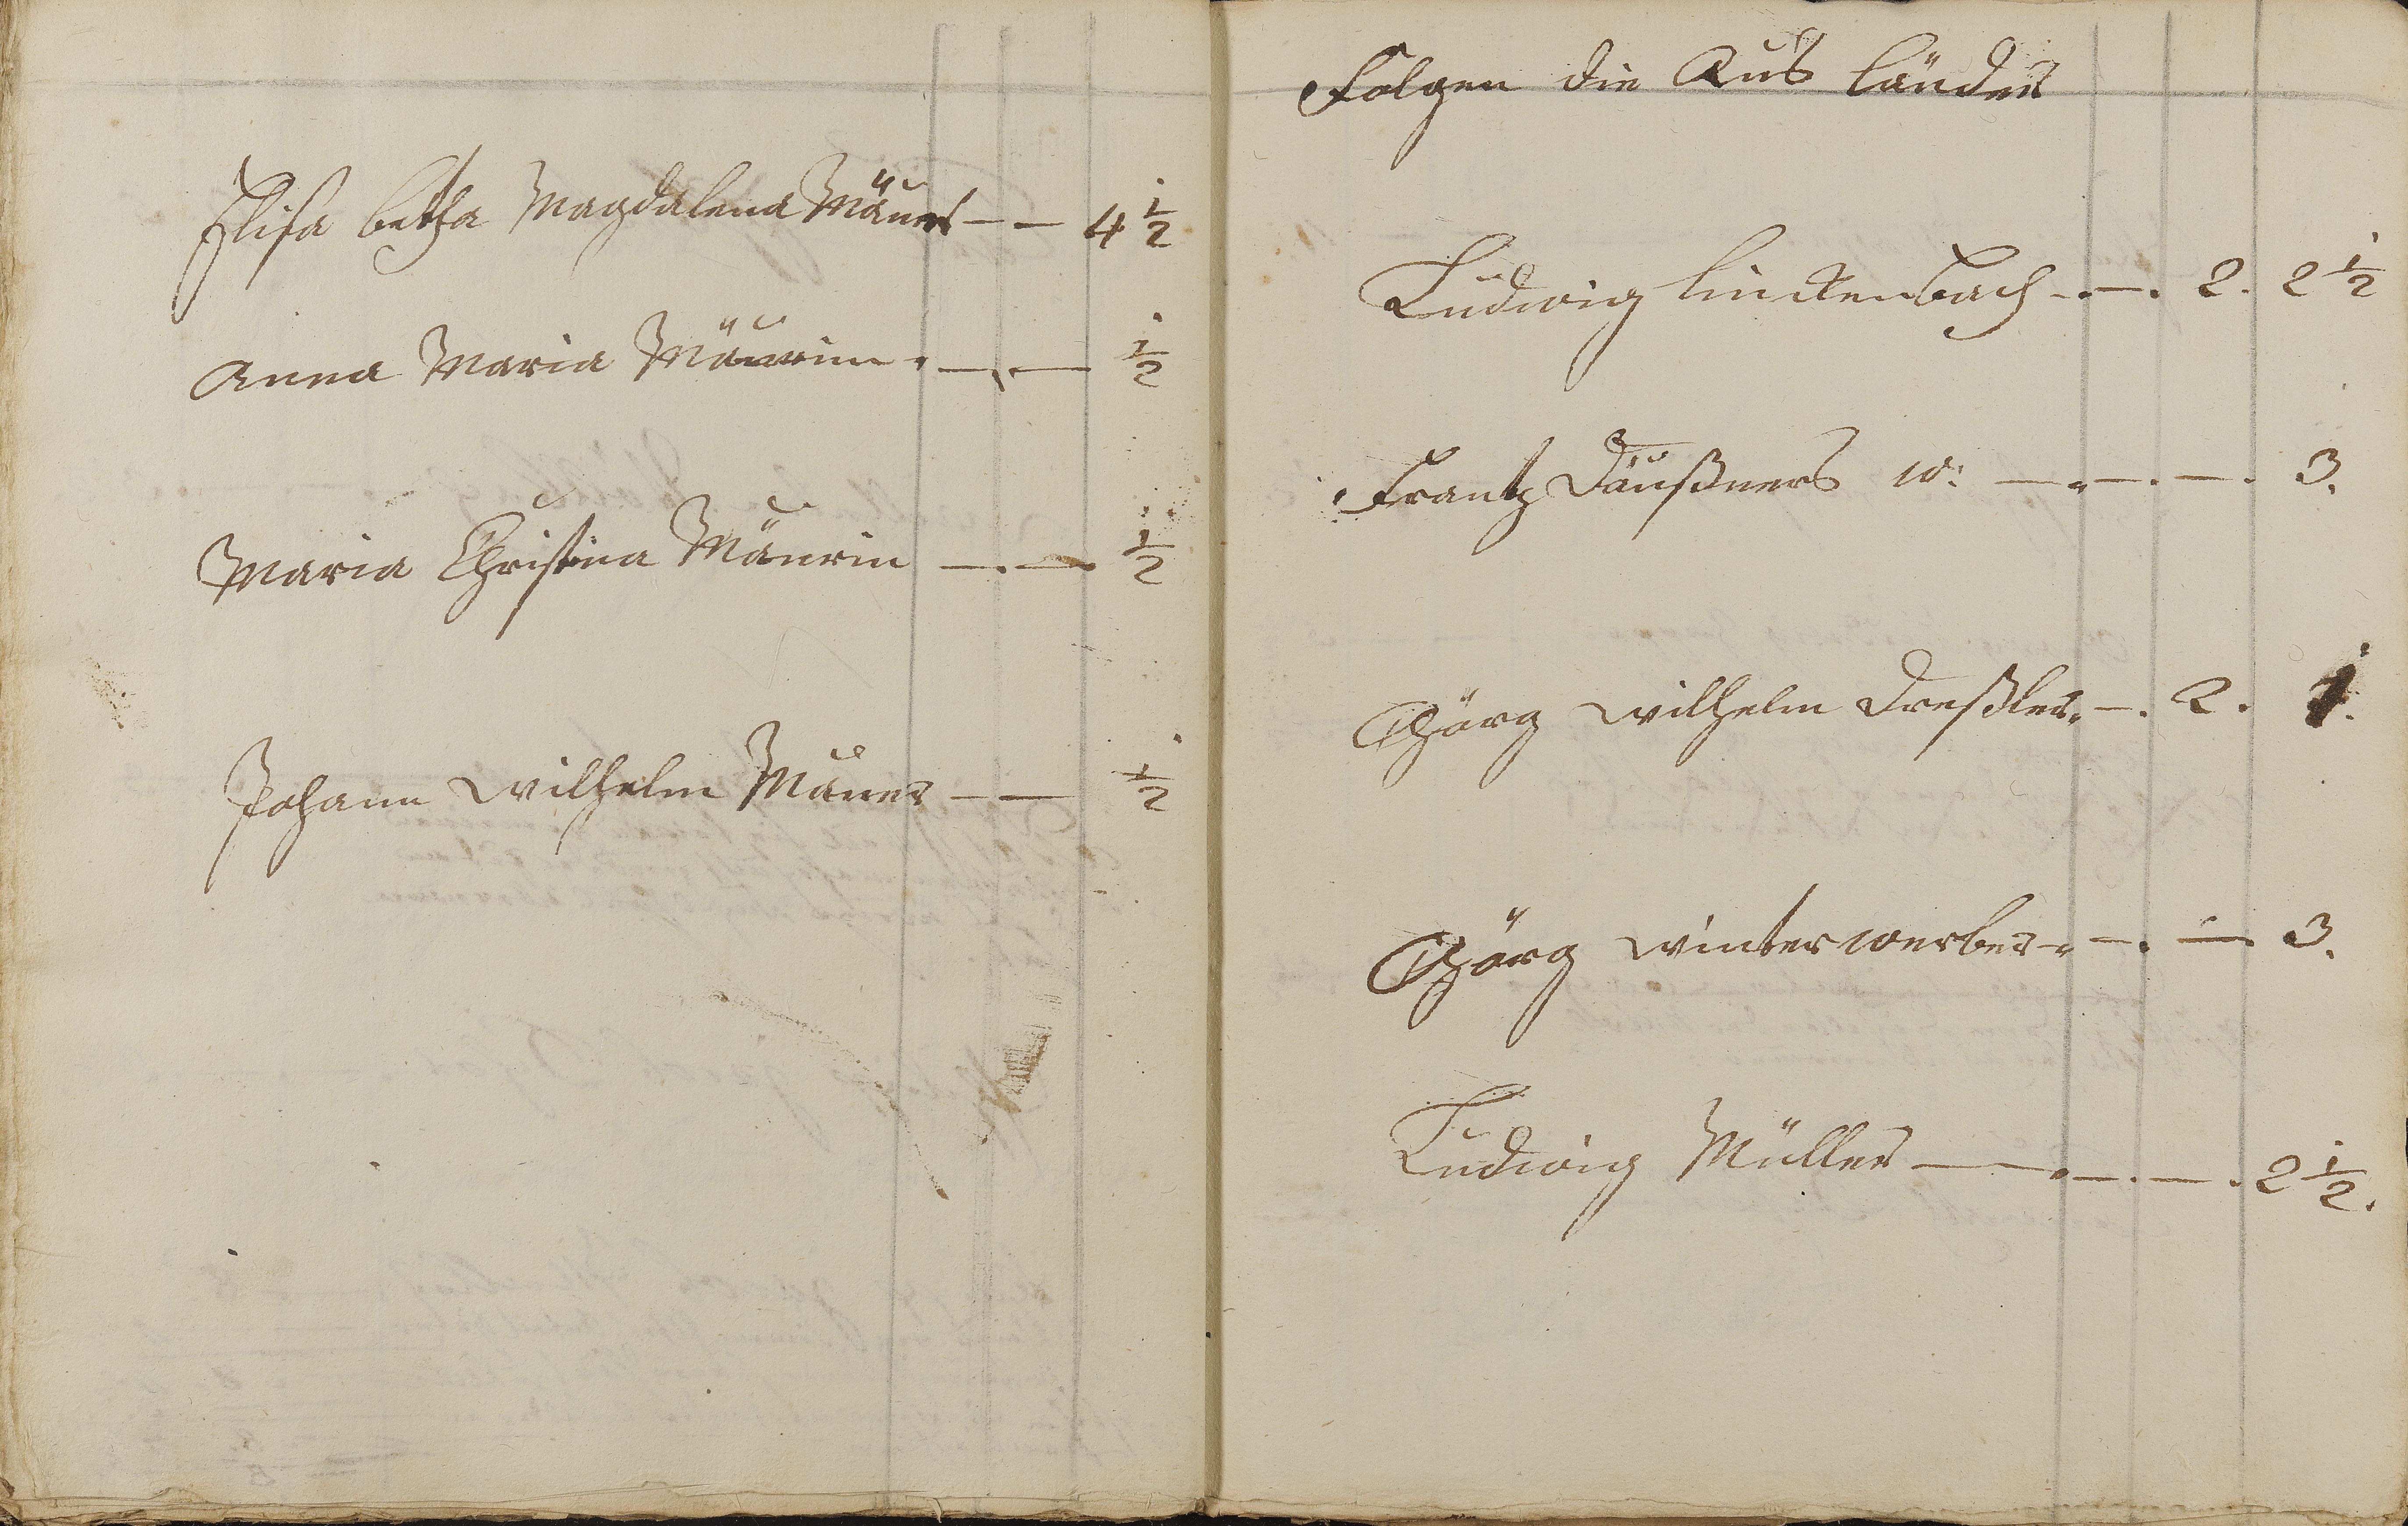 Elisa betha Magdalena Mäuer — — 4 1/2
Anna Maria Mäuerin . — . — 1/2
Maria Christina Mäurin — . — 1/2
Johann Wilhelm Mäuer — — 1/2
Folgen die Aus länder
Ludwig Linckenbach — . — . 2 . 2 1/2
Frantz Däußners w: — . — . — . 3 .
Görg Wilhelm Dreßler . — . 2 . 1 .
Görg Winterwerber . — . — 3 .
Ludwig Müller — . — . — . 2 1/2 .